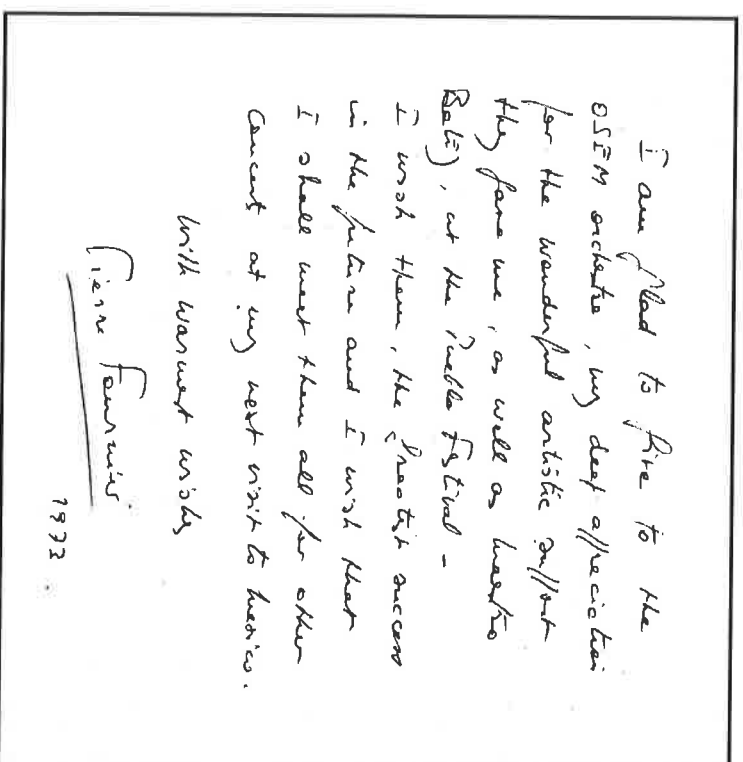 I am glad to give to the
OSEM orchestra, my deep appreciation
for the wonderful artistic support
they gave me, as well as maestro
Batiz, at the Puebla Festival -
I wish them, the greatest success
in the future and I wish that
I shall meet them all for other
concerts at my next visit to Mexico.
With warmest wishes
Pierre Fournier
1973